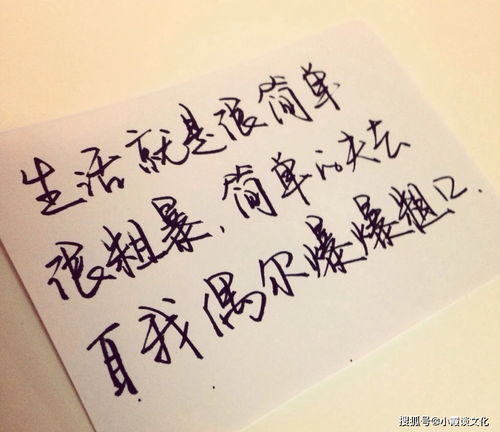 生活就是很简单
很粗暴,简单的失去
自我偶尔爆爆粗口.
搜狐号@小霞谈文化